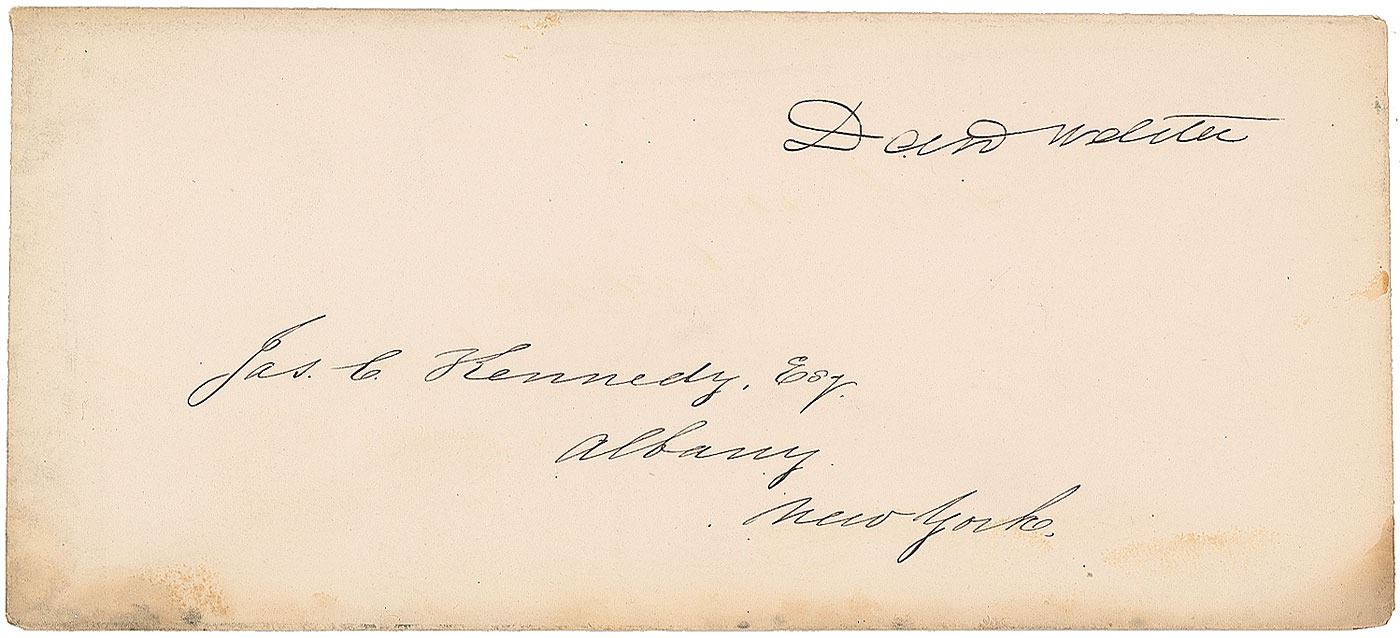 Webster
Jas. C. Kennedy, Esq.
Albany
New York.